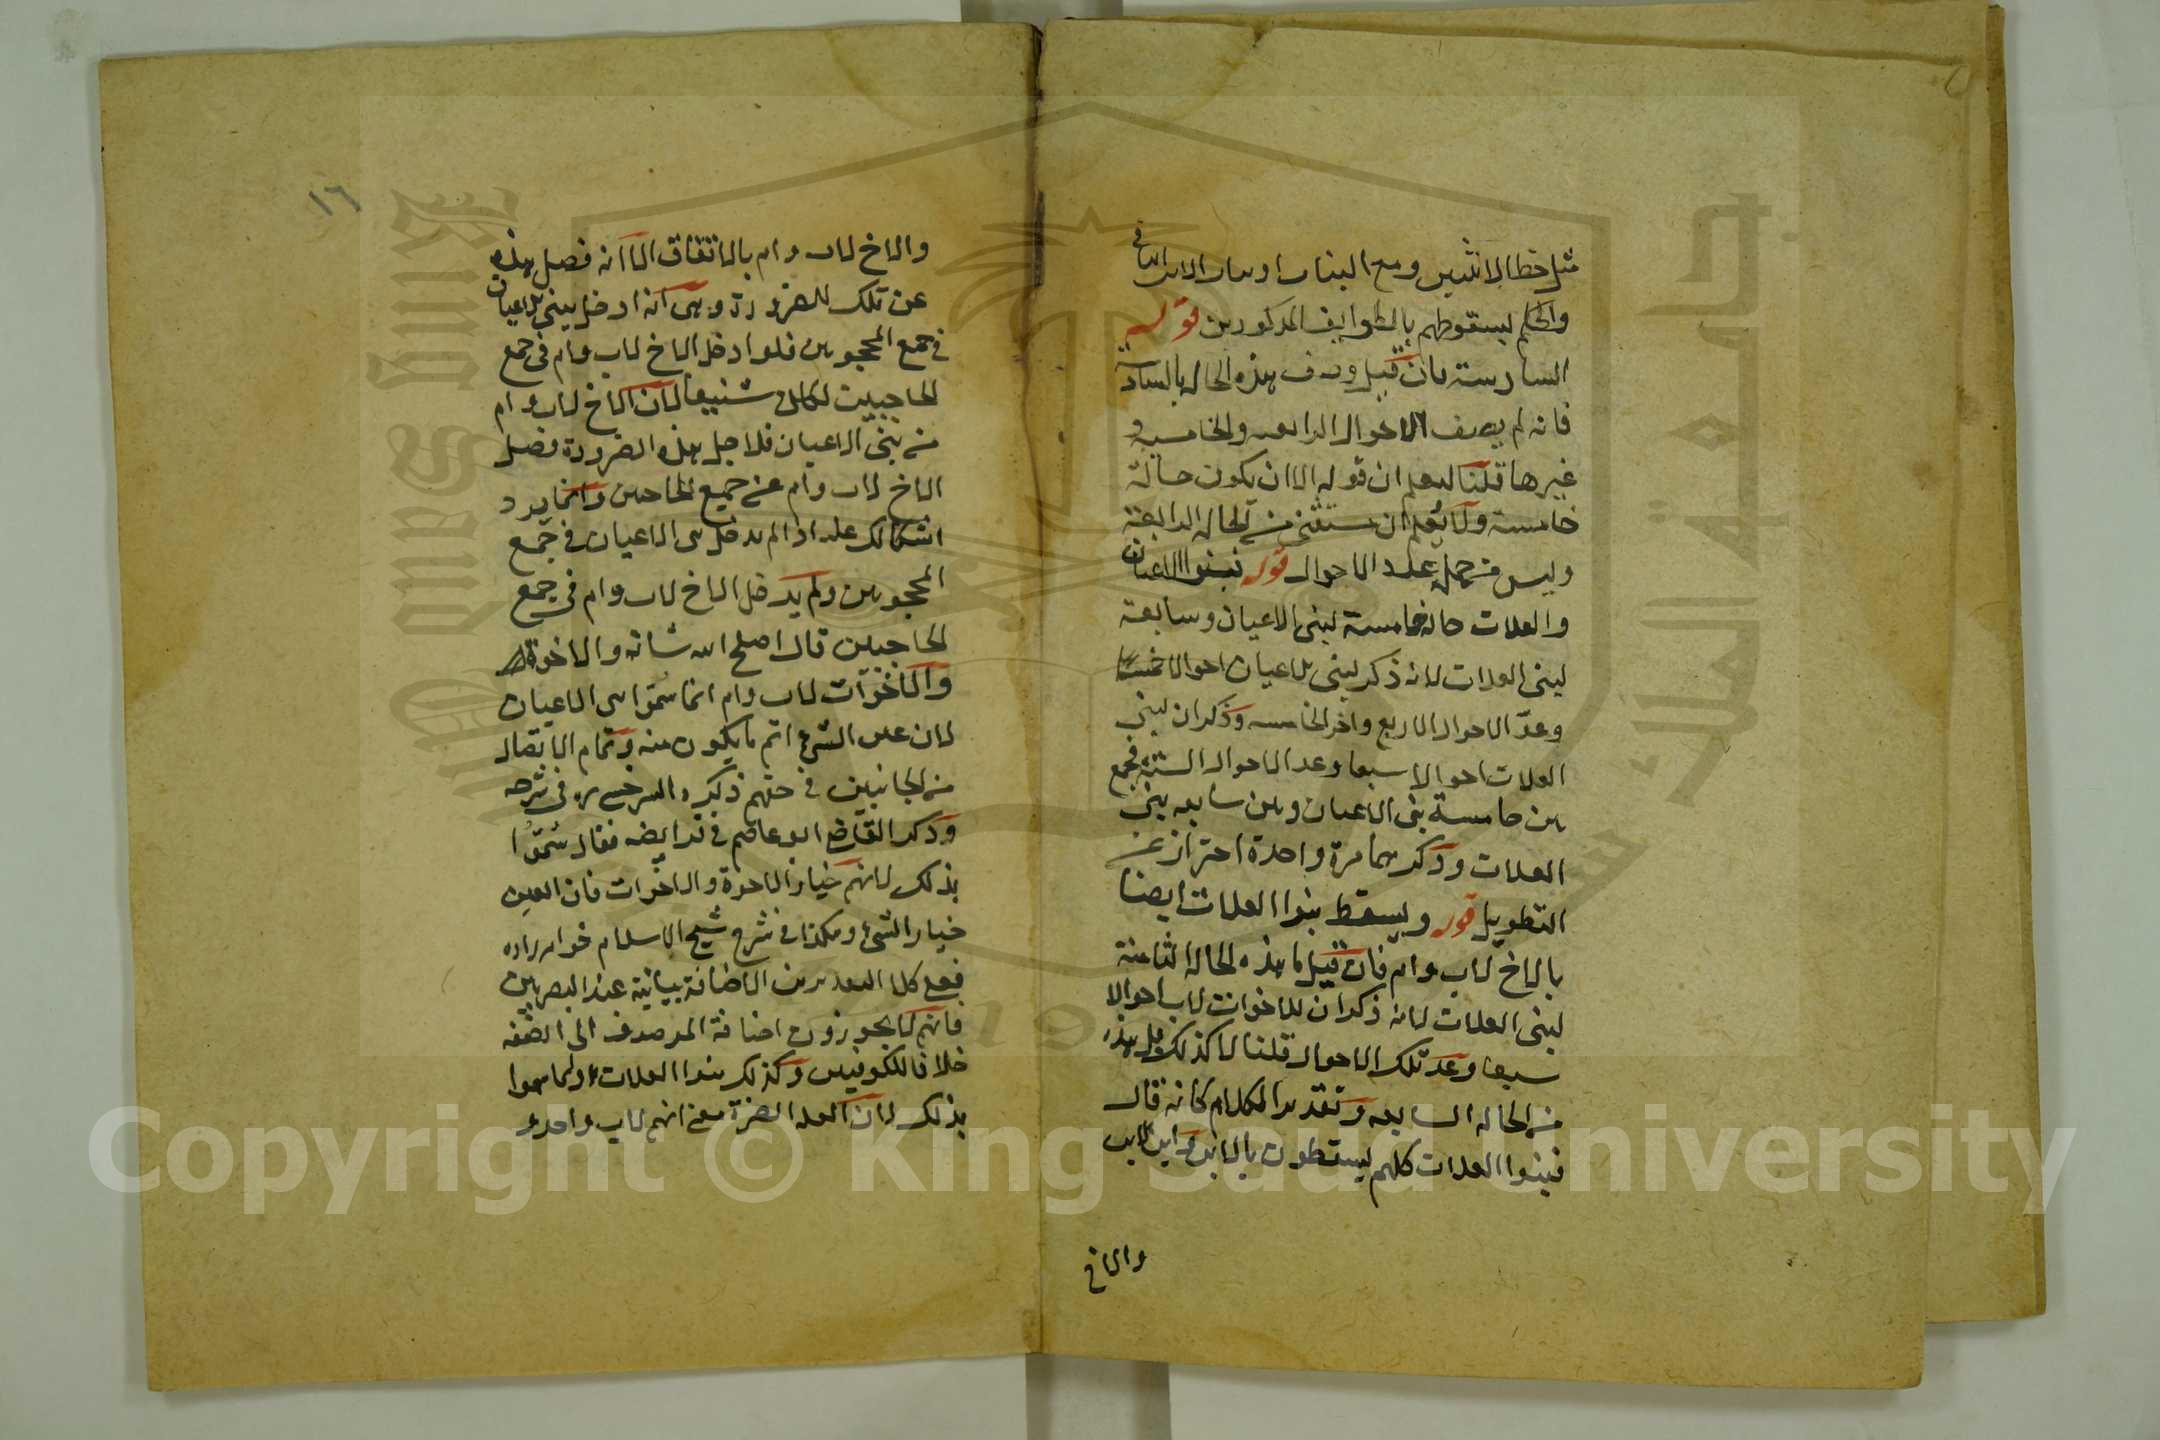 مثل حظ الانثيين ومع البنات او بنات الابن الباقى
والحكم بسقوطهم بالطوايف المذكورين قوله
السادسة فان قيل وصف هذه الحالة بالسادسة
فانه لم يصف الاحوال الرابعة والخامسة و
غيرها قلنا ليعلم ان قوله الا ان يكون حالة
خامسة ولا يعلم ان مستثنى من الحالة الرابعة
وليس من جملة عدد الاحوال قوله فبنوا الاعيان
والعلات حالة خامسة لبنى الاعيان وسابعة
لبنى العلات لانه ذكر لبنى الاعيان احوالا خمسا
وعدّ الاحوال الاربع واخر الخامسة وذكر ان لبنى
العلات احوالا سبعا وعد الاحوال الستة فجمع
بين خامسة بنى الاعيان وبين سابعة بنى
العلات وذكرهما مرة واحدة احترازا عن
التطويل قوله ويسقط بنوا العلات ايضا
بالاخ لاب وام فان قيل ما هذه الحالة الثامنة
لبنى العلات لانه ذكر ان للاخوات لاب احوالا
سبعا وعد تلك الاحوال قلنا لا كذلك بل هذه
من الحالة السابعة وتقدير الكلام كانه قال
فبنوا العلات كلهم يسقطون بالابن وابن الابن
والاخ
١٦
والاخ لاب وام بالاتفاق الا انه فصل هذه
عن تلك للضرورة وهى انه ادخل بنى الاعيان
فى جمع المحجوبين فلو ادخل الاخ لاب وام فى جمع
الحاجبين لكان شنيعا لان الاخ لاب وام
من بنى الاعيان فلاجل هذه الضرورة فصل
الاخ لاب وام عن جميع الحاجبين وانما يرد
اشكالك عليه اذا لم يدخل بنى الاعيان فى جمع
المحجوبين ولم يدخل الاخ لاب وام فى جمع
الحاجبين قال اصلح الله شانه والاخوة
والاخوات لاب وام انما سمّوا بنى الاعيان
لان عين الشئ اتم ما يكون منه وتمام الاتصال
من الجانبين فى حقهم ذكره السرخسى ره فى شرحه
وذكر القاضى ابو عاصم فى فرايضه فقال سُمّوا
بذلك لانهم خيار الاخوة والاخوات فان العين
خيار الشئ وهكذا فى شرح شيخ الاسلام خواهرزاده
فعلى كلا التقديرين الاضافة بيانية عند البصريين
فانهم لا يجوزون اضافة الموصوف الى الصفة
خلافا للكوفيين وكذلك بنوا العلات وانما سموا
بذلك لان العلة الضرة معنى انهم لاب واحد و